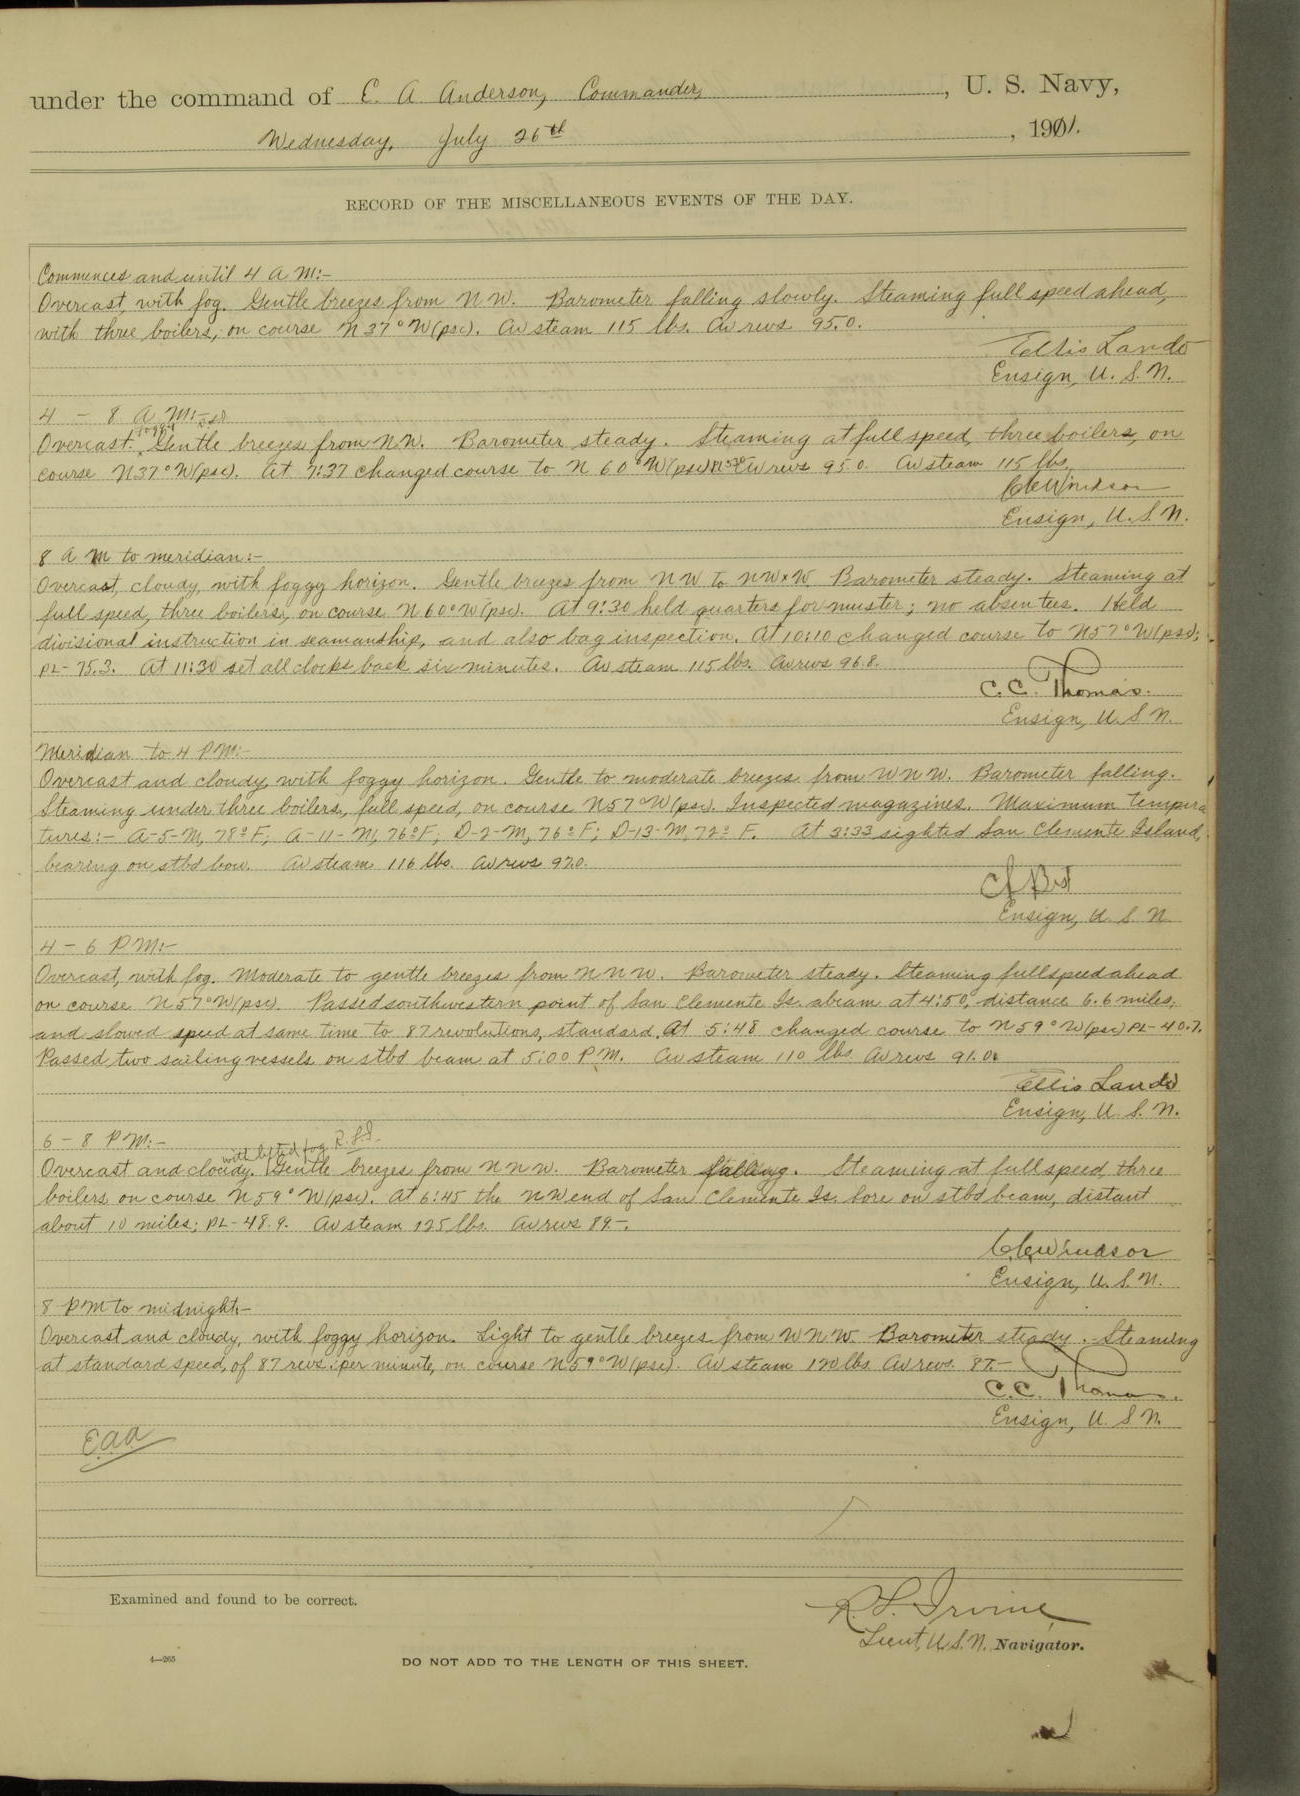 under the command of E. A. Anderson, Commander, U. S. Navy,
Wednesday, July 26th, 1911.
RECORD OF THE MISCELLANEOUS EVENTS OF THE DAY.
Commences and until 4 A M:-
Overcast, with fog. Gentle breezes from NW. Barometer falling slowly. Steaming full speed ahead,
with three boilers, on course N37°W(psc). Av steam 115 lbs. Av revs 95.0.
Ellis Lando
Ensign, U. S. N.
4 - 8 A M:-
foggy
Overcast. Gentle breezes from NW. Barometer steady. Steaming at full speed, three boilers, on
course N37°W(psc). At 7:37 changed course to N 60°W(psc) Av revs 95.0. Av steam 115 lbs.
Windsor
Ensign, U.S.N.
8 A M to meridian:-
Overcast, cloudy, with foggy horizon. Gentle breezes from NW to NWxW. Barometer steady. Steaming at
full speed, three boilers, on course N60°W(psc). At 9:30 held quarters for muster; no absentees. Held
divisional instruction in seamanship, and also bag inspection. At 10:10 changed course to N57°W(psc);
PL- 75.3. At 11:30 set all clocks back six minutes. Av steam 115 lbs. Av revs 96.8.
C. C. Thomas.
Ensign, U.S.N.
Meridian to 4 PM:-
Overcast and cloudy, with foggy horizon. Gentle to moderate breezes from WNW. Barometer falling.
Steaming under three boilers, full speed, on course N57°W(psc). Inspected magazines. Maximum tempera
tures:- A-5-M, 78°F; A-11-M, 76°F; D-2-M, 76°F; D-13-M, 72° F. At 3:33 sighted San Clemente Island,
bearing on stbd bow. Av steam 116 lbs. Av revs 97.0.
Best
Ensign, U. S. N.
4 - 6 P M:-
Overcast, with fog. Moderate to gentle breezes from NNW. Barometer steady. Steaming full speed ahead
on course N57°W(psc). Passed southwestern point of San Clemente Is. abeam at 4:50, distance 6.6 miles,
and slowed speed at same time to 87 revolutions, standard. At 5:48 changed course to N59°W(psc) PL-40.7.
Passed two sailing vessels on stbd beam at 5:00 P.M. Av steam 110 lbs. Av revs 91.0.
Ellis Lando
Ensign, U. S. N.
6 - 8 P M:-
with lifted fog R.F.I.
Overcast and cloudy. Gentle breezes from NNW. Barometer falling. Steaming at full speed, three
boilers, on course N59°W(psc). At 6:45 the NW end of San Clemente Is. bore on stbd beam, distant
about 10 miles; PL- 48.9. Av steam 125 lbs. Av revs 89-.
Windsor
Ensign, U. S. N.
8 PM to midnight:-
Overcast and cloudy, with foggy horizon. Light to gentle breezes from WNW. Barometer steady. Steaming
at standard speed, of 87 revs. per minute, on course N59°W(psc). Av steam 120 lbs. Av revs. 87.-
C.C. Thomas.
Ensign, U. S. N.
E.A.A
Examined and found to be correct.
R. F. Irvine,
Lieut, U.S.N. Navigator.
4—265
DO NOT ADD TO THE LENGTH OF THIS SHEET.